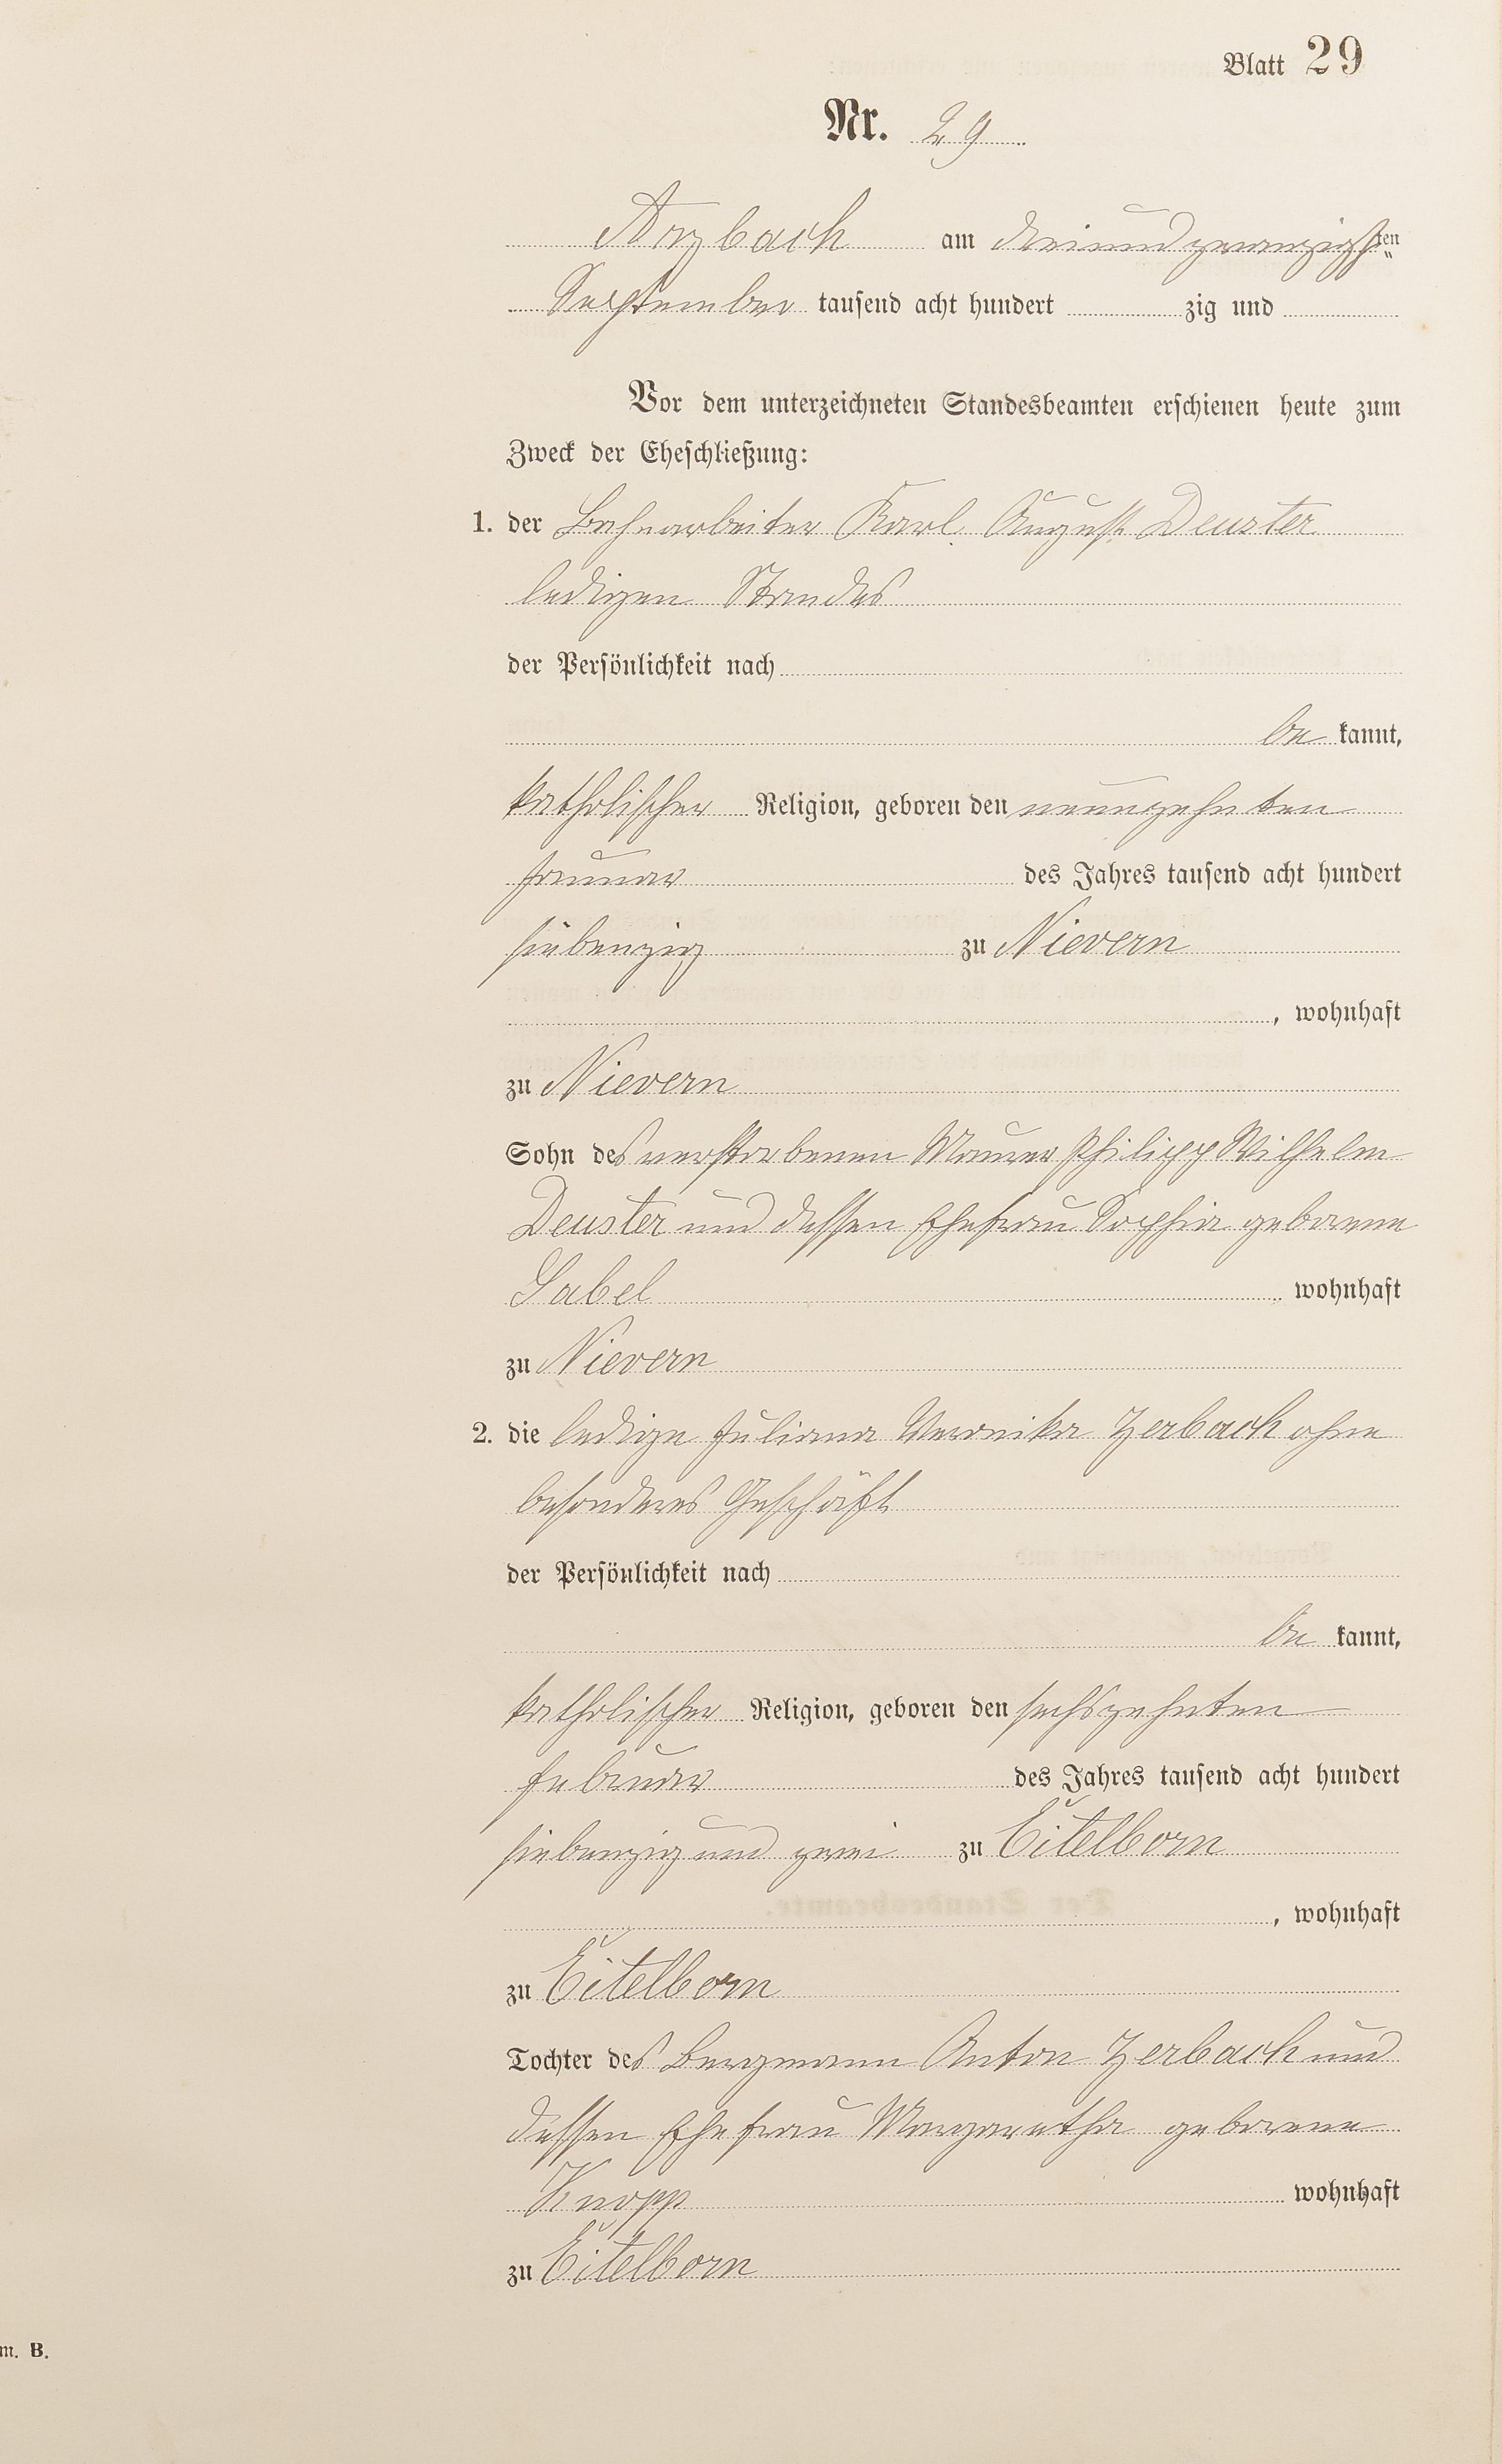 Blatt 29
Nr. 29
Arzbach am dreiundzwanzigsten
September tausend acht hundert zig und
Vor dem unterzeichneten Standesbeamten erschienen heute zum
Zweck der Eheschließung:
1. der Bahnarbeiter Karl August Deuster
ledigen Standes
der Persönlichkeit nach
be kannt,
katholischer Religion, geboren den neunzehnten
Januar des Jahres tausend acht hundert
siebenzig zu Nievern
, wohnhaft
zu Nievern
Sohn des verstorbenen Maurer Philipp Wilhelm
Deuster und dessen Ehefrau Sophia geborene
Sabel wohnhaft
zu Nievern
2. die ledige Juliana Veronika Zerbach ohne
besonderes Geschäft
der Persönlichkeit nach
be kannt,
katholischer Religion, geboren den sechszehnten
Februar des Jahres tausend acht hundert
siebenzig und zwei zu Eitelborn
, wohnhaft
zu Eitelborn
Tochter des Bergmann Anton Zerbach und
dessen Ehefrau Margaretha geborene
Knopp wohnhaft
zu Eitelborn
m. B.